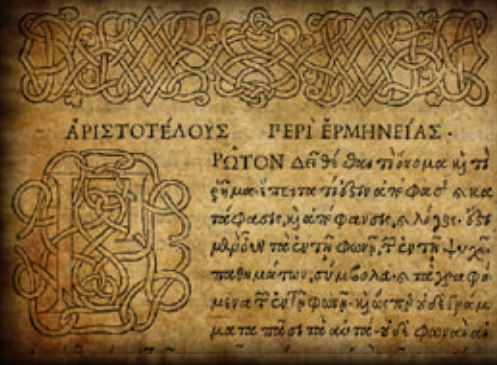 ἈΡΙΣΤΟΤΈΛΟΥΣ ΠΕΡῚ ἙΡΜΗΝΕΊΑΣ.
ΡΩ͂ΤΟΝ Δεῖ θέσθαι τί ὄνομα κ̀ τί
ῥῆμα· ἔπειτα τί ἐστιν ἀπόφασις κα
τάφασις, κ̀ ἀπόφανσις, κ̀ λόγος. ἔστι
μὲν οὖν τὰ ἐν τῇ φωνῇ, τ͂ ἐν τῇ ψυχῇ
παθημάτων, σύμβολα. κ̀ τὰ γραφό
μενα τ͂ ἐν τῇ φωνῇ. κ̀ ὥσπερ οὐδὲ γράμ
ματα πᾶσι τὰ αὐτὰ. οὐδὲ φωναὶ αἱ